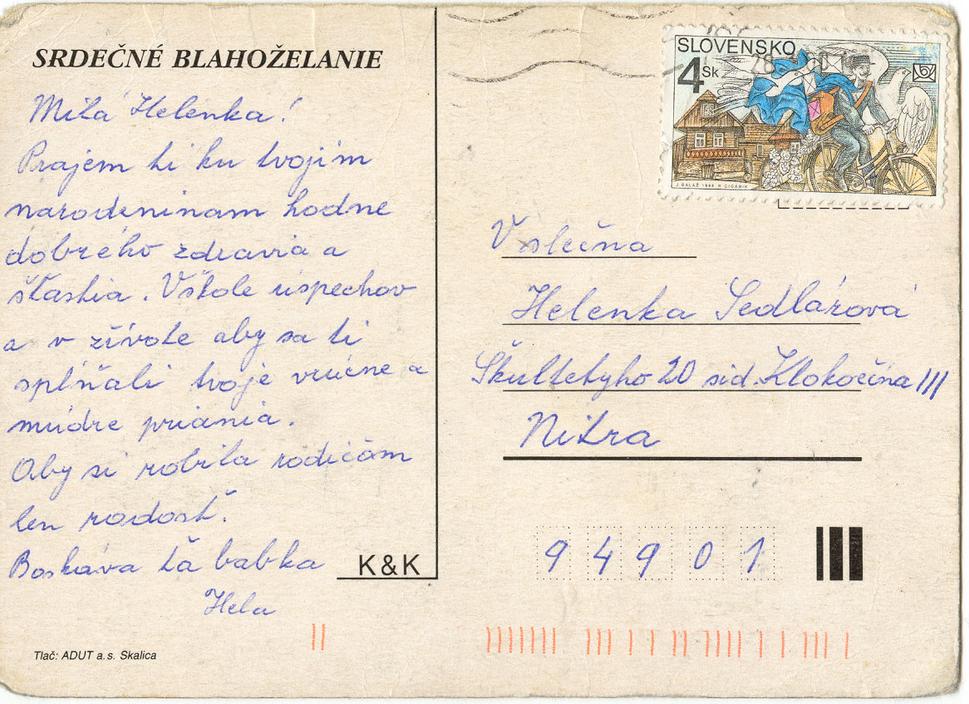 SRDEČNÉ BLAHOŽELANIE
Milá Helenka!
Prajem ti ku tvojim
narodeninam hodne
dobrého zdravia a
šťastia. Vškole úspechov
a v živote aby sa ti
splňali tvoje vrúcne a
múdre priania.
Aby si robila rodičom
len radosť.
Boskáva ťa babka
Hela
K&K
Tlač: ADUT a.s. Skalica
SLOVENSKO
4 Sk
Vslečna
Helenka Sedlárová
Škultetyho 20 sid. Klokočina III
Nitra
9 4 9 0 1